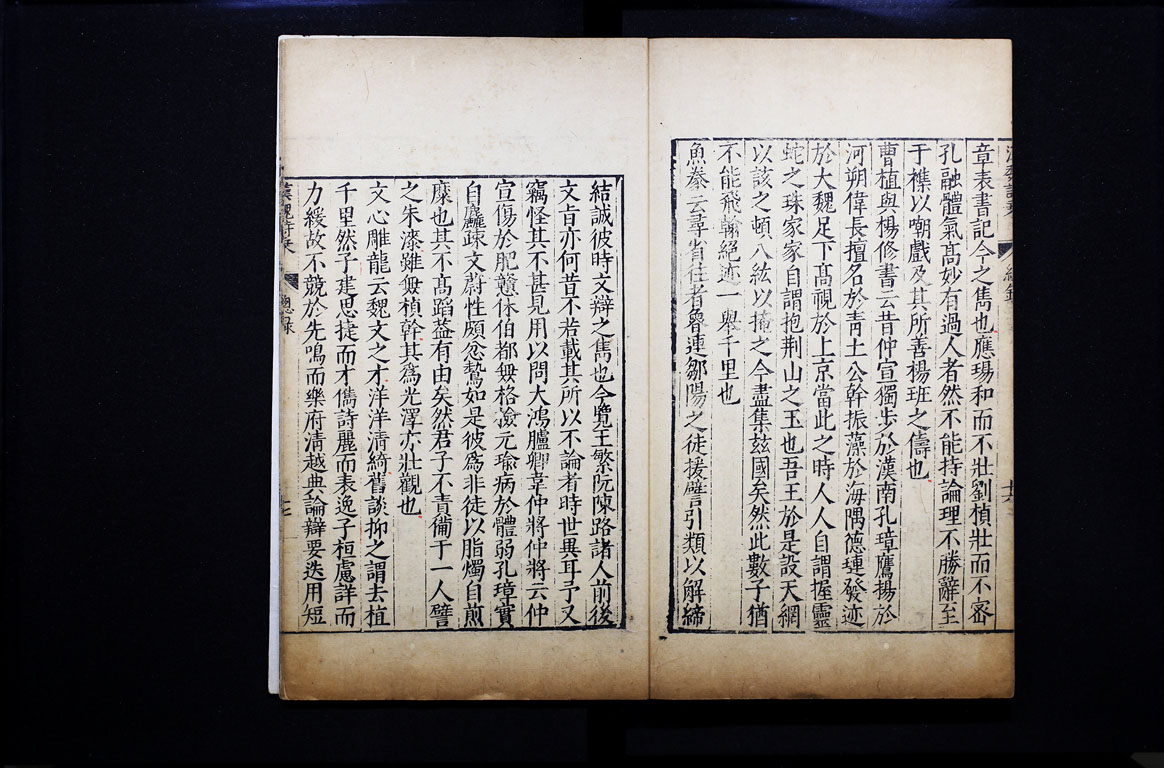 章表書記今之雋也應瑒和而不壯劉楨壯而不密
孔融體氣髙妙有過人者然不能持論理不勝辭至
于襍以嘲戲及其所善楊班之儔也
曹植與楊修書云昔仲宣獨步於漢南孔璋鷹揚於
河朔偉長擅名於靑土公幹振藻於海隅德璉發迹
於大魏足下髙視於上京當此之時人人自謂握靈
蛇之珠家家自謂抱荆山之玉也吾王於是設天網
以該之頓八紘以掩之今盡集玆國矣然此數子猶
不能飛翰絕迹一舉千里也
魚豢云尋省往者魯連鄒陽之徒援譬引類以解締
結誠彼時文辯之雋也今覽王繁阮陳路諸人前後
文旨亦何昔不若載其所以不論者時世異耳予又
竊怪其不甚見用以問大鴻臚卿韋仲將仲將云仲
宣傷於肥戇休伯都無格檢元瑜病於體弱孔璋實
自麤疎文蔚性頗忿鷙如是彼爲非徒以脂燭自煎
糜也其不髙蹈葢有由矣然君子不責備于一人譬
之朱漆雖無楨幹其爲光澤亦壯觀也
文心雕龍云魏文之才洋洋淸綺舊談抑之謂去植
千里然子建思捷而才儁詩麗而表逸子桓慮詳而
力緩故不競於先鳴而樂府淸越典論辯要迭用短
漢魏詩乘
總錄
十七